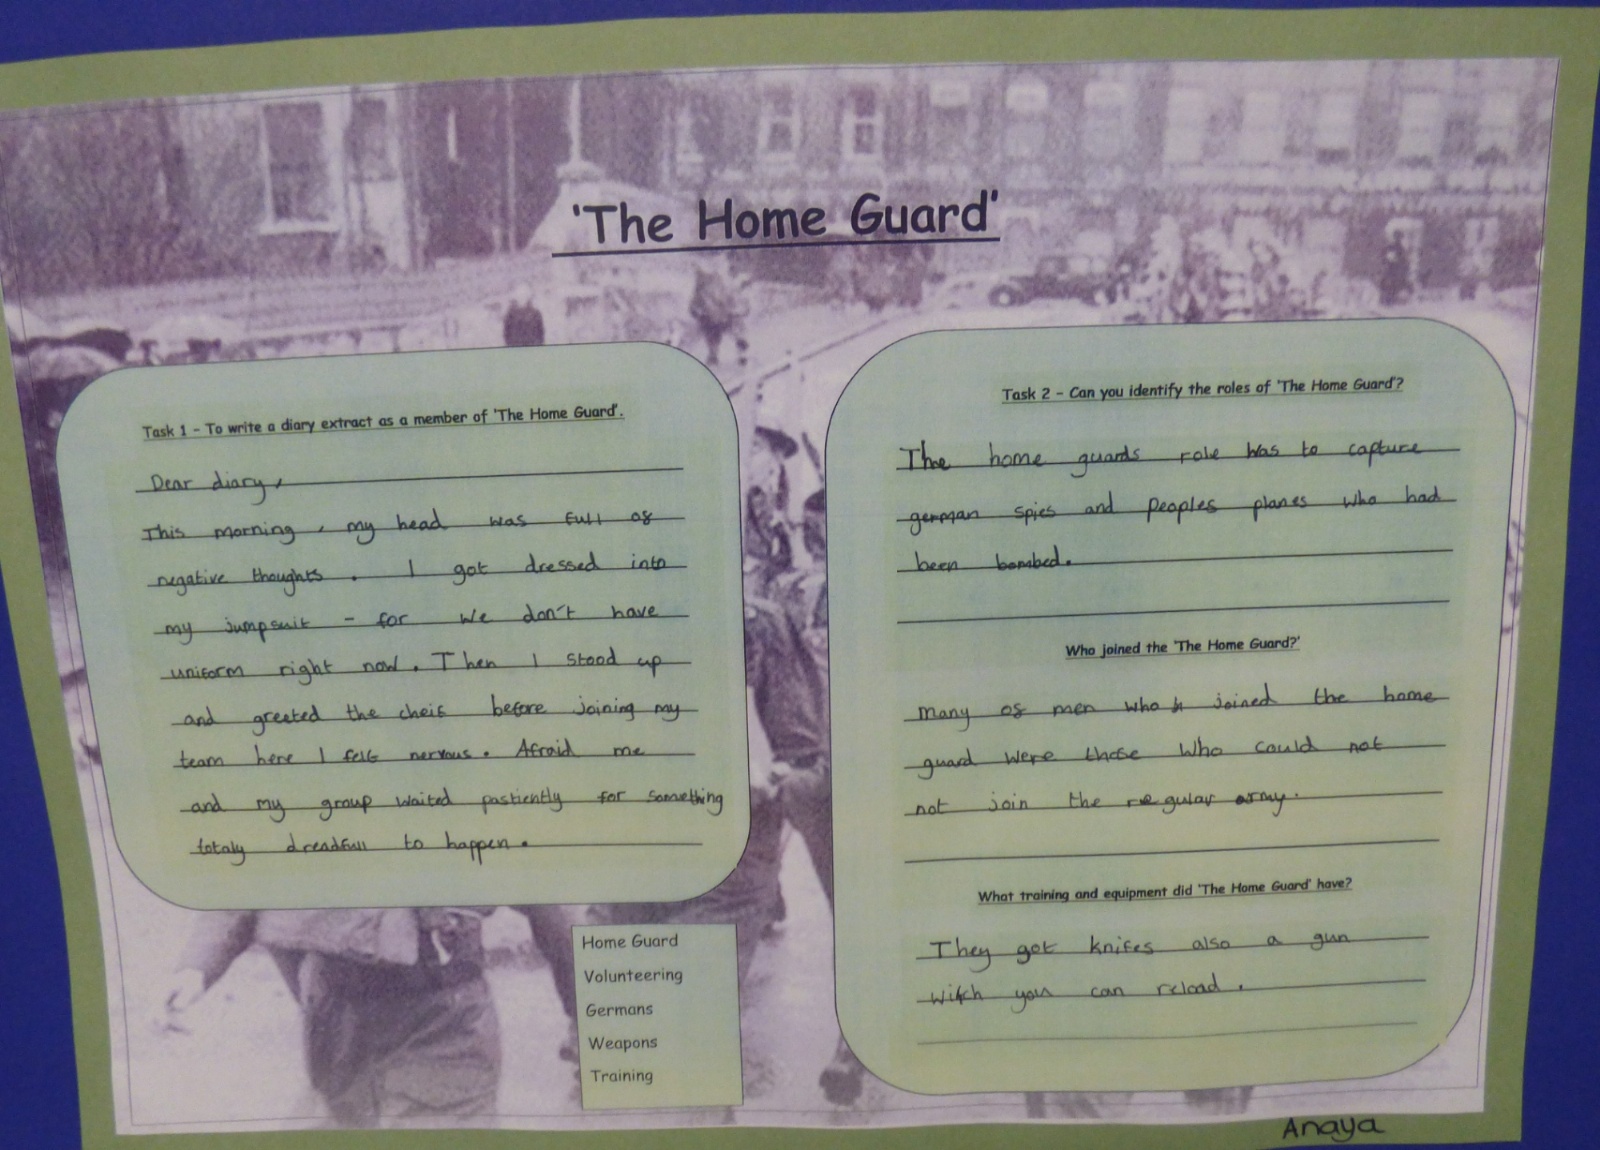 'The Home Guard'
Task 1 - To write a diary extract as a member of 'The Home Guard'.
Dear diary,
This morning, my head was full of
negative thoughts. I got dressed into
my jumpsuit - for we don't have
uniform right now. Then I stood up
and greeted the cheif before joining my
team here I felt nervous. Afraid me
and my group waited pastiently for something
totaly dreadfull to happen.
Home Guard
Volunteering
Germans
Weapons
Training
Task 2 - Can you identify the roles of 'The Home Guard'?
The home guards role was to capture
german spies and peoples planes who had
been bombed.
Who joined the 'The Home Guard?'
many of men who joined the home
guard were those who could not
not join the regular army.
What training and equipment did 'The Home Guard' have?
They got knifes also a gun
witch you can reload.
Anaya